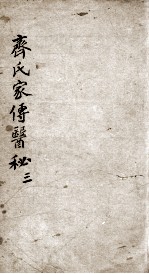 齊氏家傳醫秘三